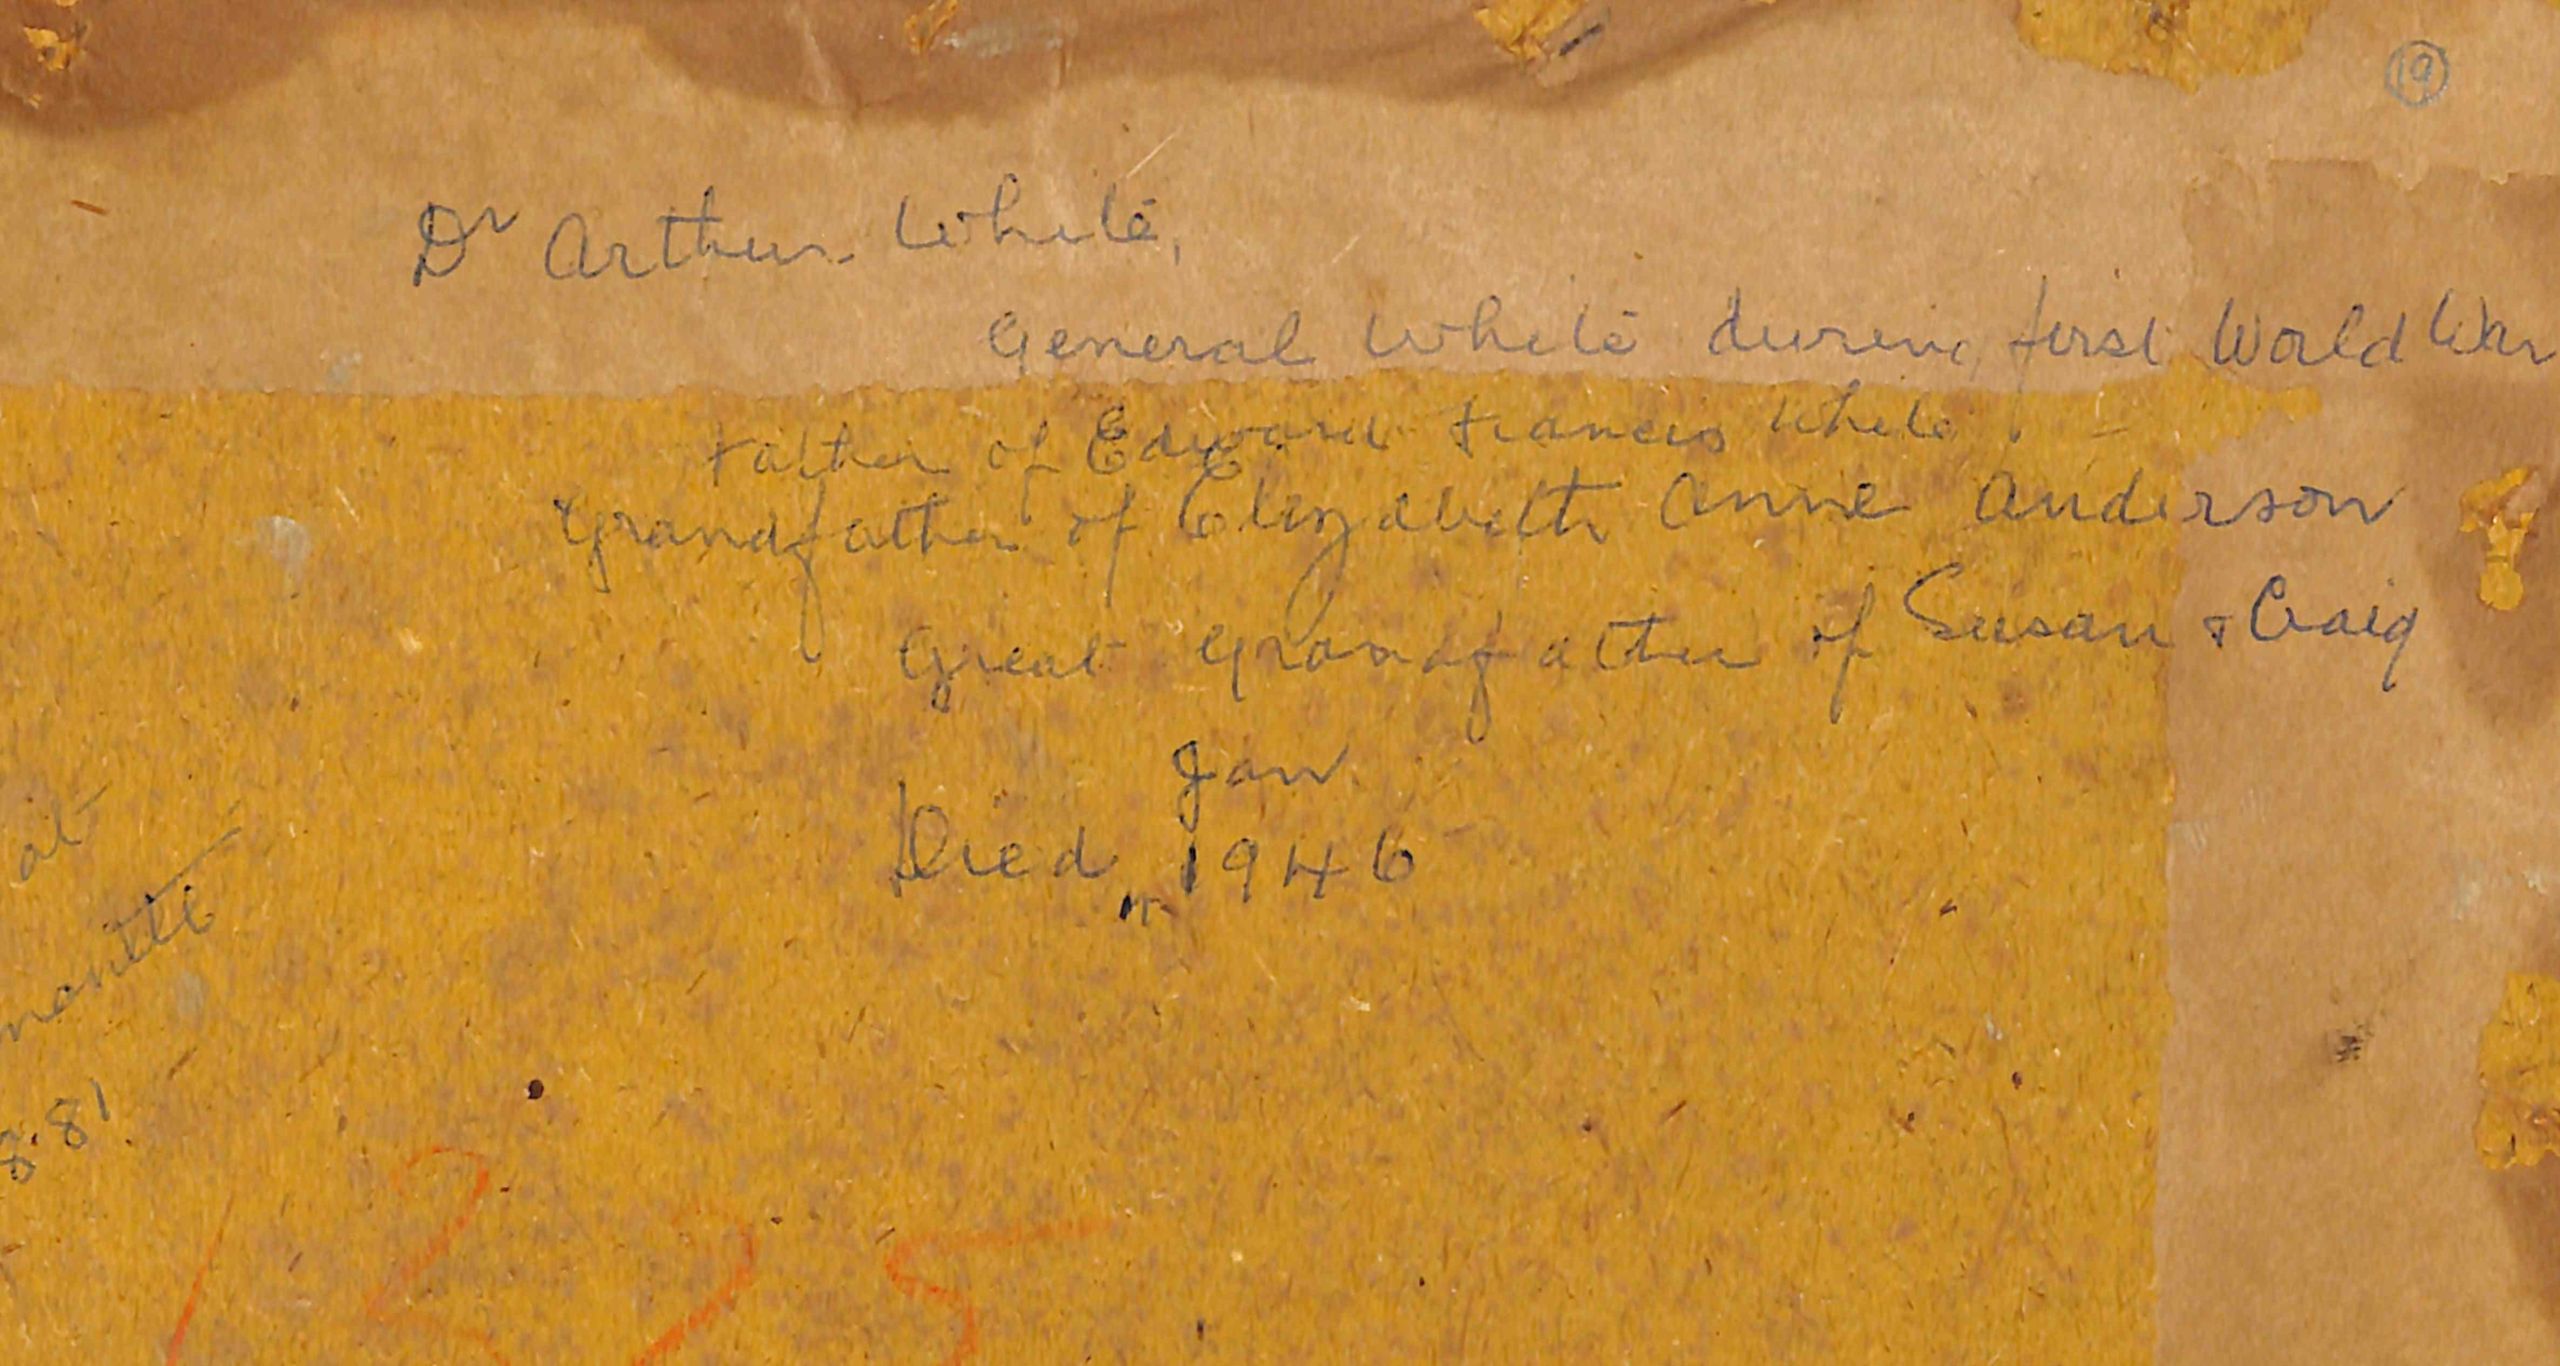 19
Dr Arthur White,
General White during first World War
Father of Edward Francis White.
Grandfather of Elizabeth Anne Anderson
Great Grandfather of Susan & Craig
Jan
Died 1946
at
8.81